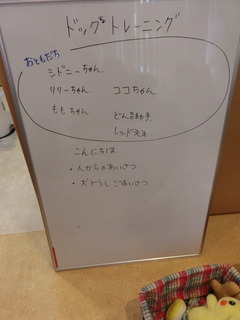 ドッグトレーニング
おともだち
シドニーちゃん
リリーちゃん ココちゃん
ももちゃん
こんにちは
・人からのあいさつ
・犬どうしごあいさつ